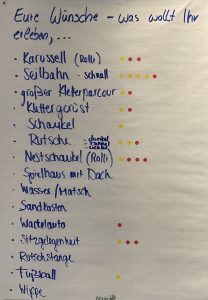 Eure Wünsche - was wollt Ihr
erleben,...
· Karussell (Rolli)
· Seilbahn - schnell
· großer Kletterparcour
· Klettergerüst
· Schaukel
· Rutsche - dunkel
· Nestschaukel (Rolli)
· Spielhaus mit Dach
· Wasser / Matsch
· Sandkasten
· Wackelauto
· Sitzgelegenheit
· Rutschstange
· Fußball
· Wippe